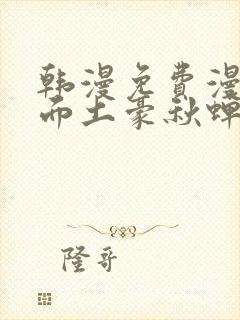 韩漫免费漫
而土豪秋蝉
隆哥